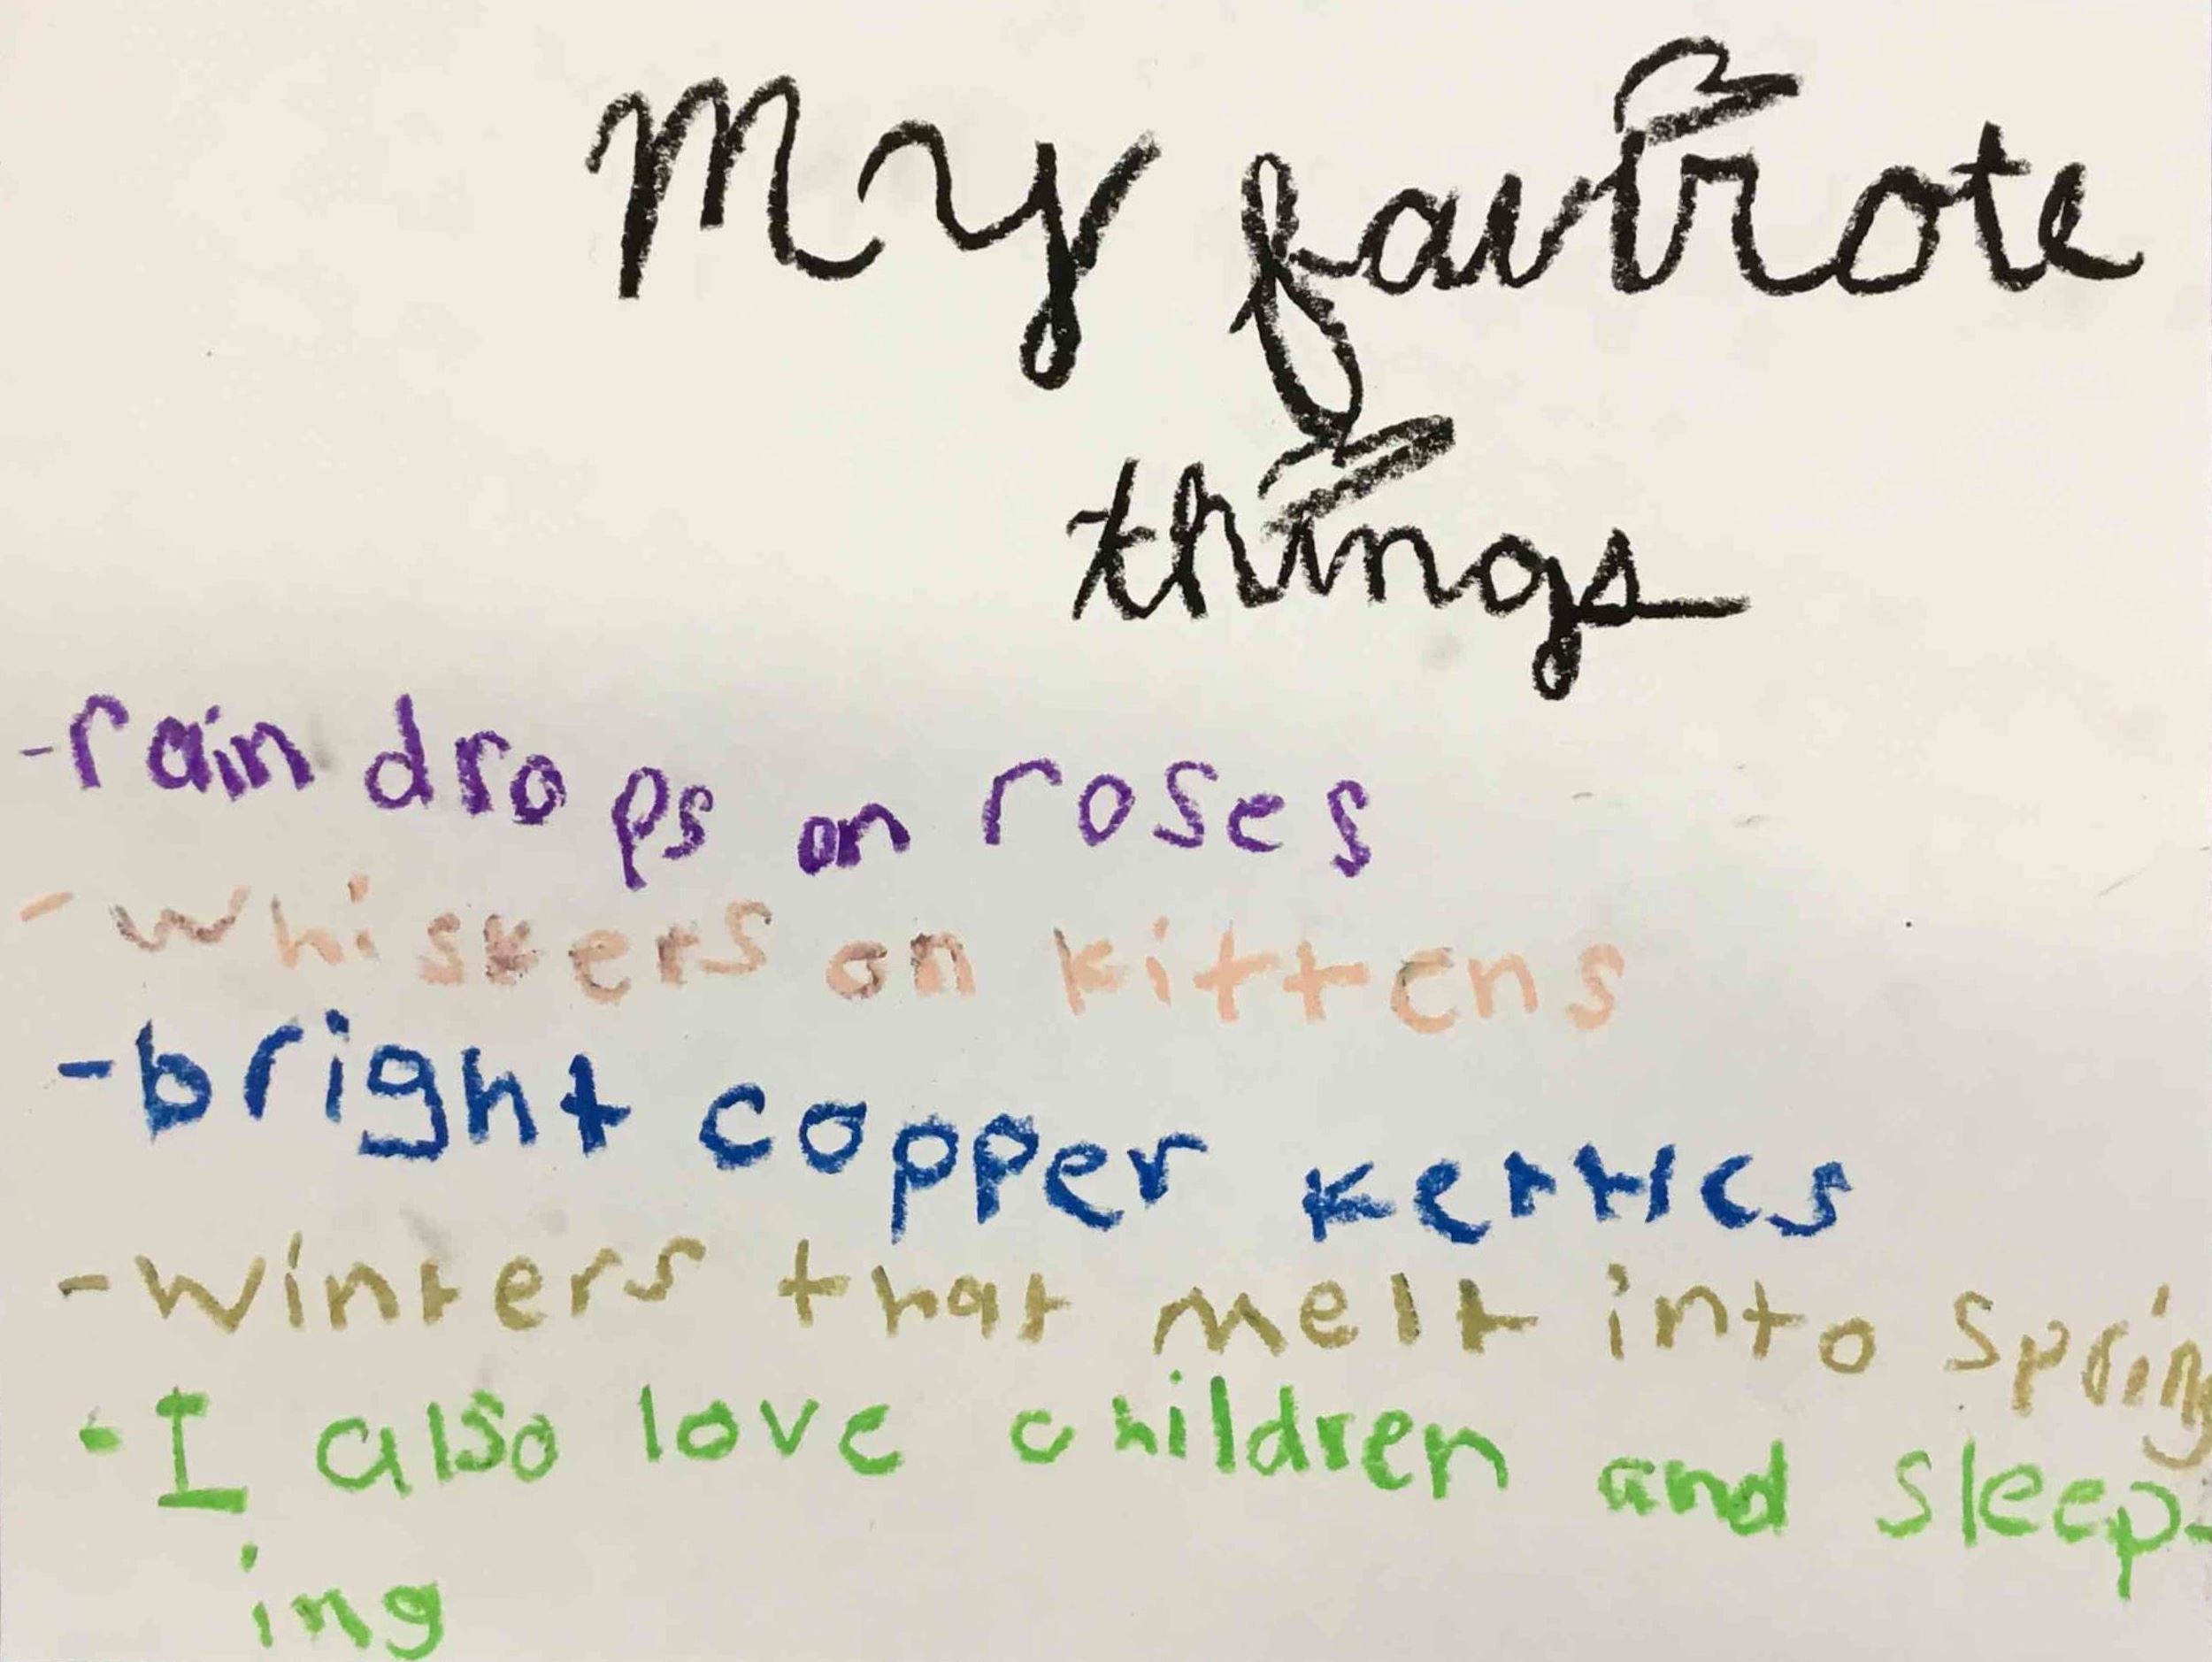 My favirote
things
-rain drops on roses
-whiskers on kittens
-bright copper kettles
-winters that melt into spring
-I also love children and sleep-
ing